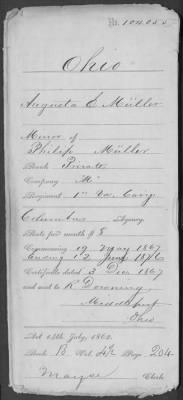 No. 104.085
Ohio
Augusta E Müller
Minor of
Philip Müller
Rank Private
Company "M"
Regiment 1" Va. Cavy
Columbus Agency.
Rate per month $ 8
Commencing 19 May 1867
Ending 12 June 1876
Certificate dated 3 Decr 1867
and sent to R Downing
Middleport
Ohio
Act 14th July, 1862.
Book B Vol. 4 Page 204
Clerk